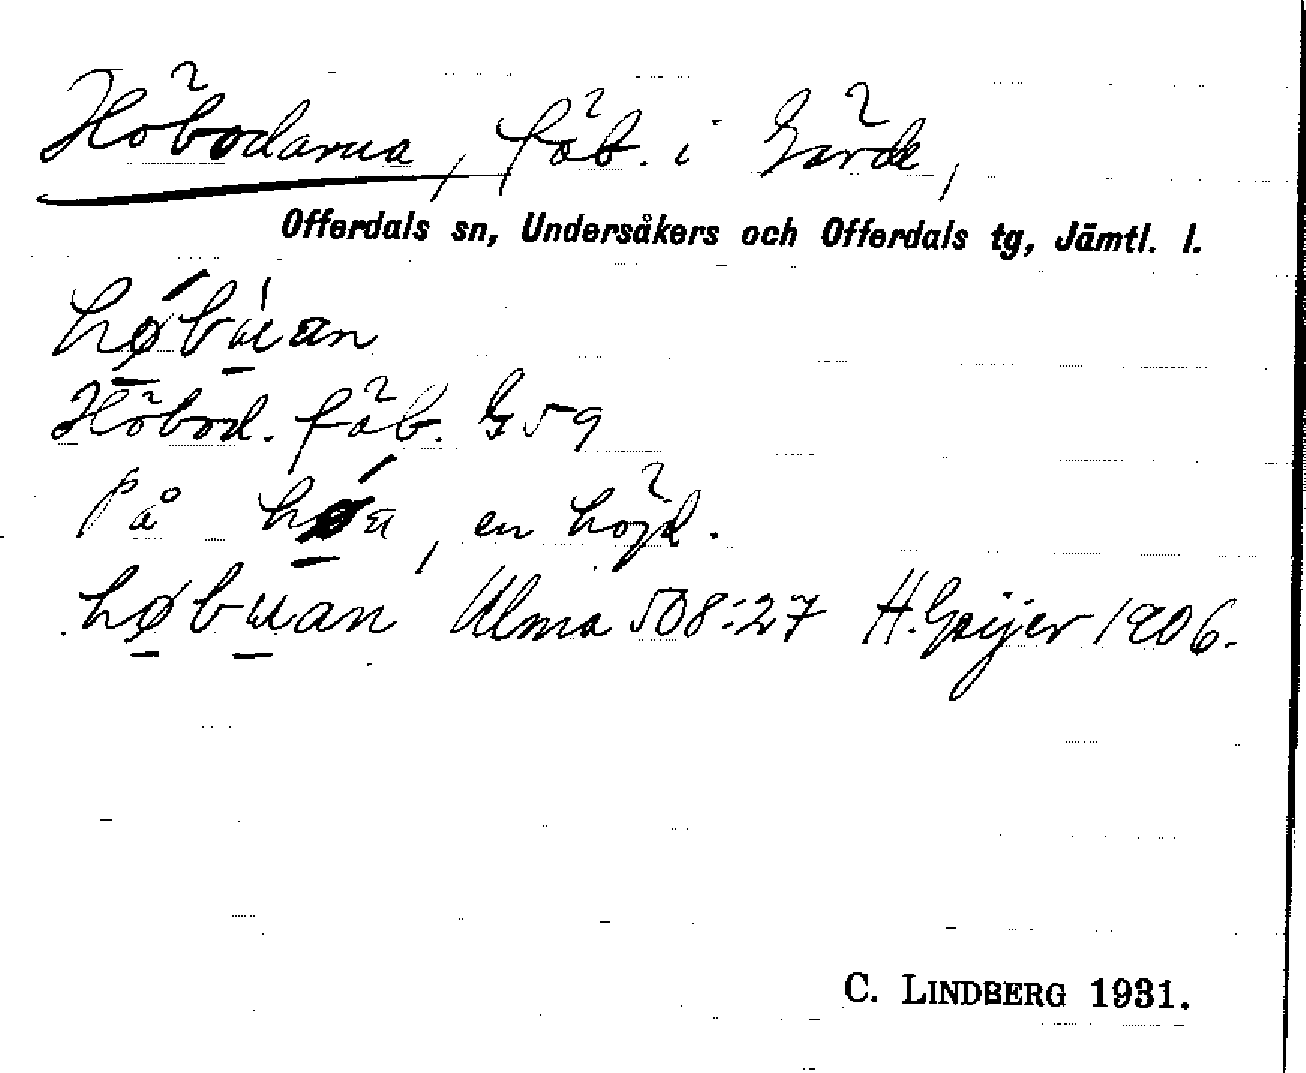 Höbodarna, fäb. i Gärde,
Offerdals sn, Undersåkers och Offerdals tg, Jämtl. l.
hǿ̱bu̱̍an
Höbod. fäb. G 59
På hǿ̱a, en höjd.
hø̱bu̱an Ulma 508:27 H. Geijer 1906.
C. LINDBERG 1931.